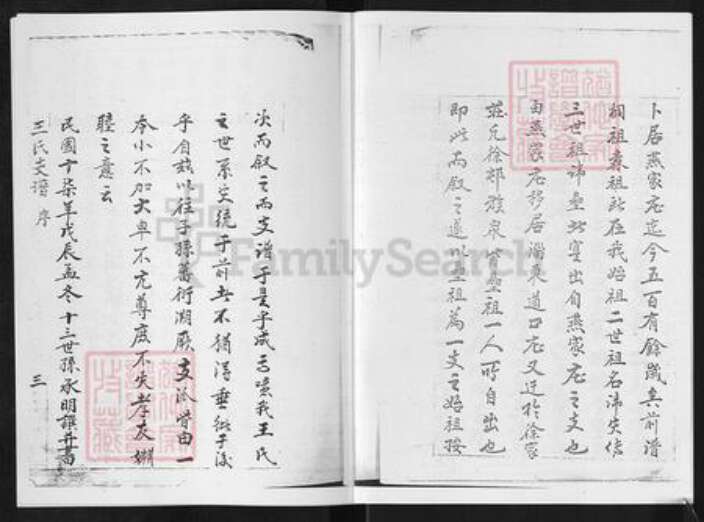 卜居燕家庄迄今五百有餘歲矣前譜
相祖森祖兆在我始祖二世祖名諱失传
三世祖諱奎北寔出自燕家庄之支也
自燕家庄移居淄東道口庄又迁於徐家
莊凡徐邨族眾皆奎祖一人所自出也
即此而叙之遂以奎祖為一支之始祖按
次而叙之而支譜于是乎成焉噫我王氏
之世系失统于前者不猶得垂紙于後
乎自兹以往子孫蕃衍溯厥支派皆由一
本小不加大卑不亢尊庶不失孝友婣
睦之意云
民國十柒年戊辰孟冬十三世孫承明譔并書
王氏支譜 序 三
FamilySearch